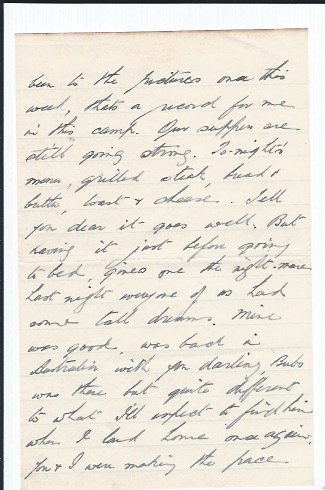 been to the pictures once this
week, thats a record for me
in this camp. Our suppers are
still going strong. To-night's
menu, grilled steak, bread &
butter, toast & cheese. I tell
you dear it goes well. But
having it just before going
to bed, gives one the night-mare
Last night everyone of us had
some tall dreams. Mine
was good, was back in
Australia with you darling, Bubs
was there but quite different
to what I'll expect to find him
when I land home once again.
You & I were making the pace